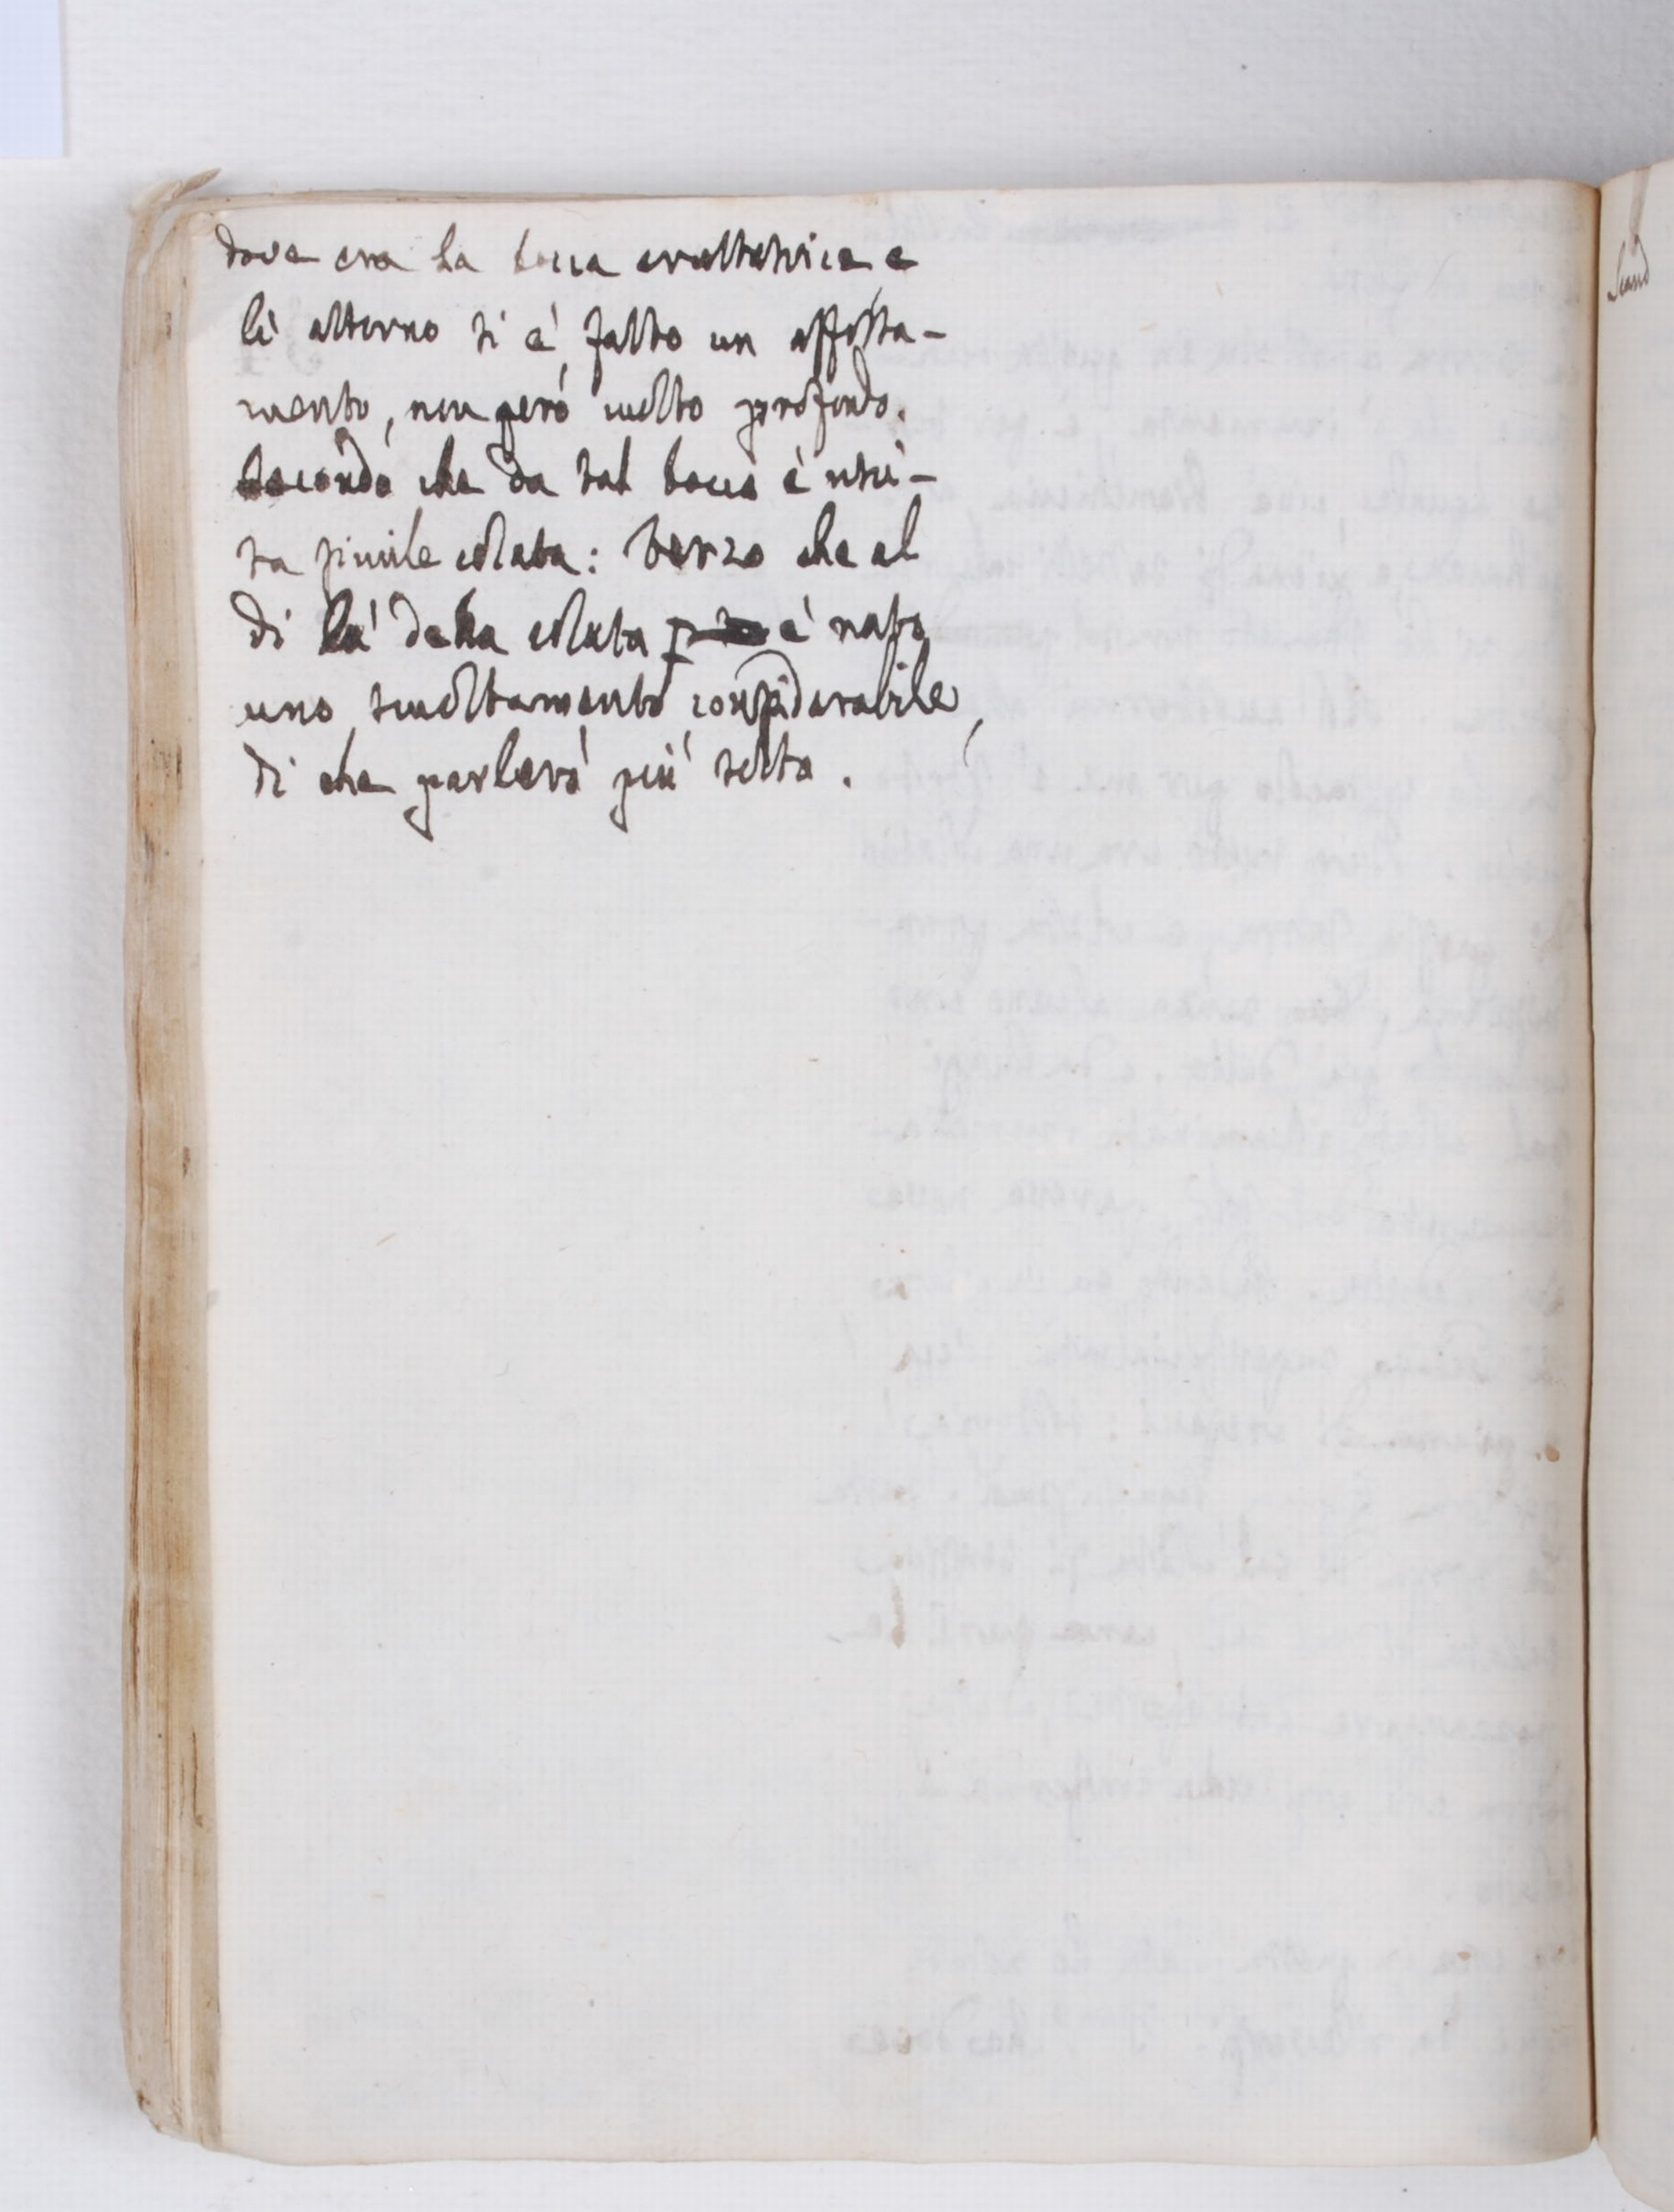 dove era la bocca eruttatrice e
lì attorno si è fatto un affossa-
mento, non però molto profondo.
Secondo che da tal bocca è usci-
ta simile colata: terzo che al
di là della colata è nato
uno smottamento considerabile,
di che parlerò più sotto.